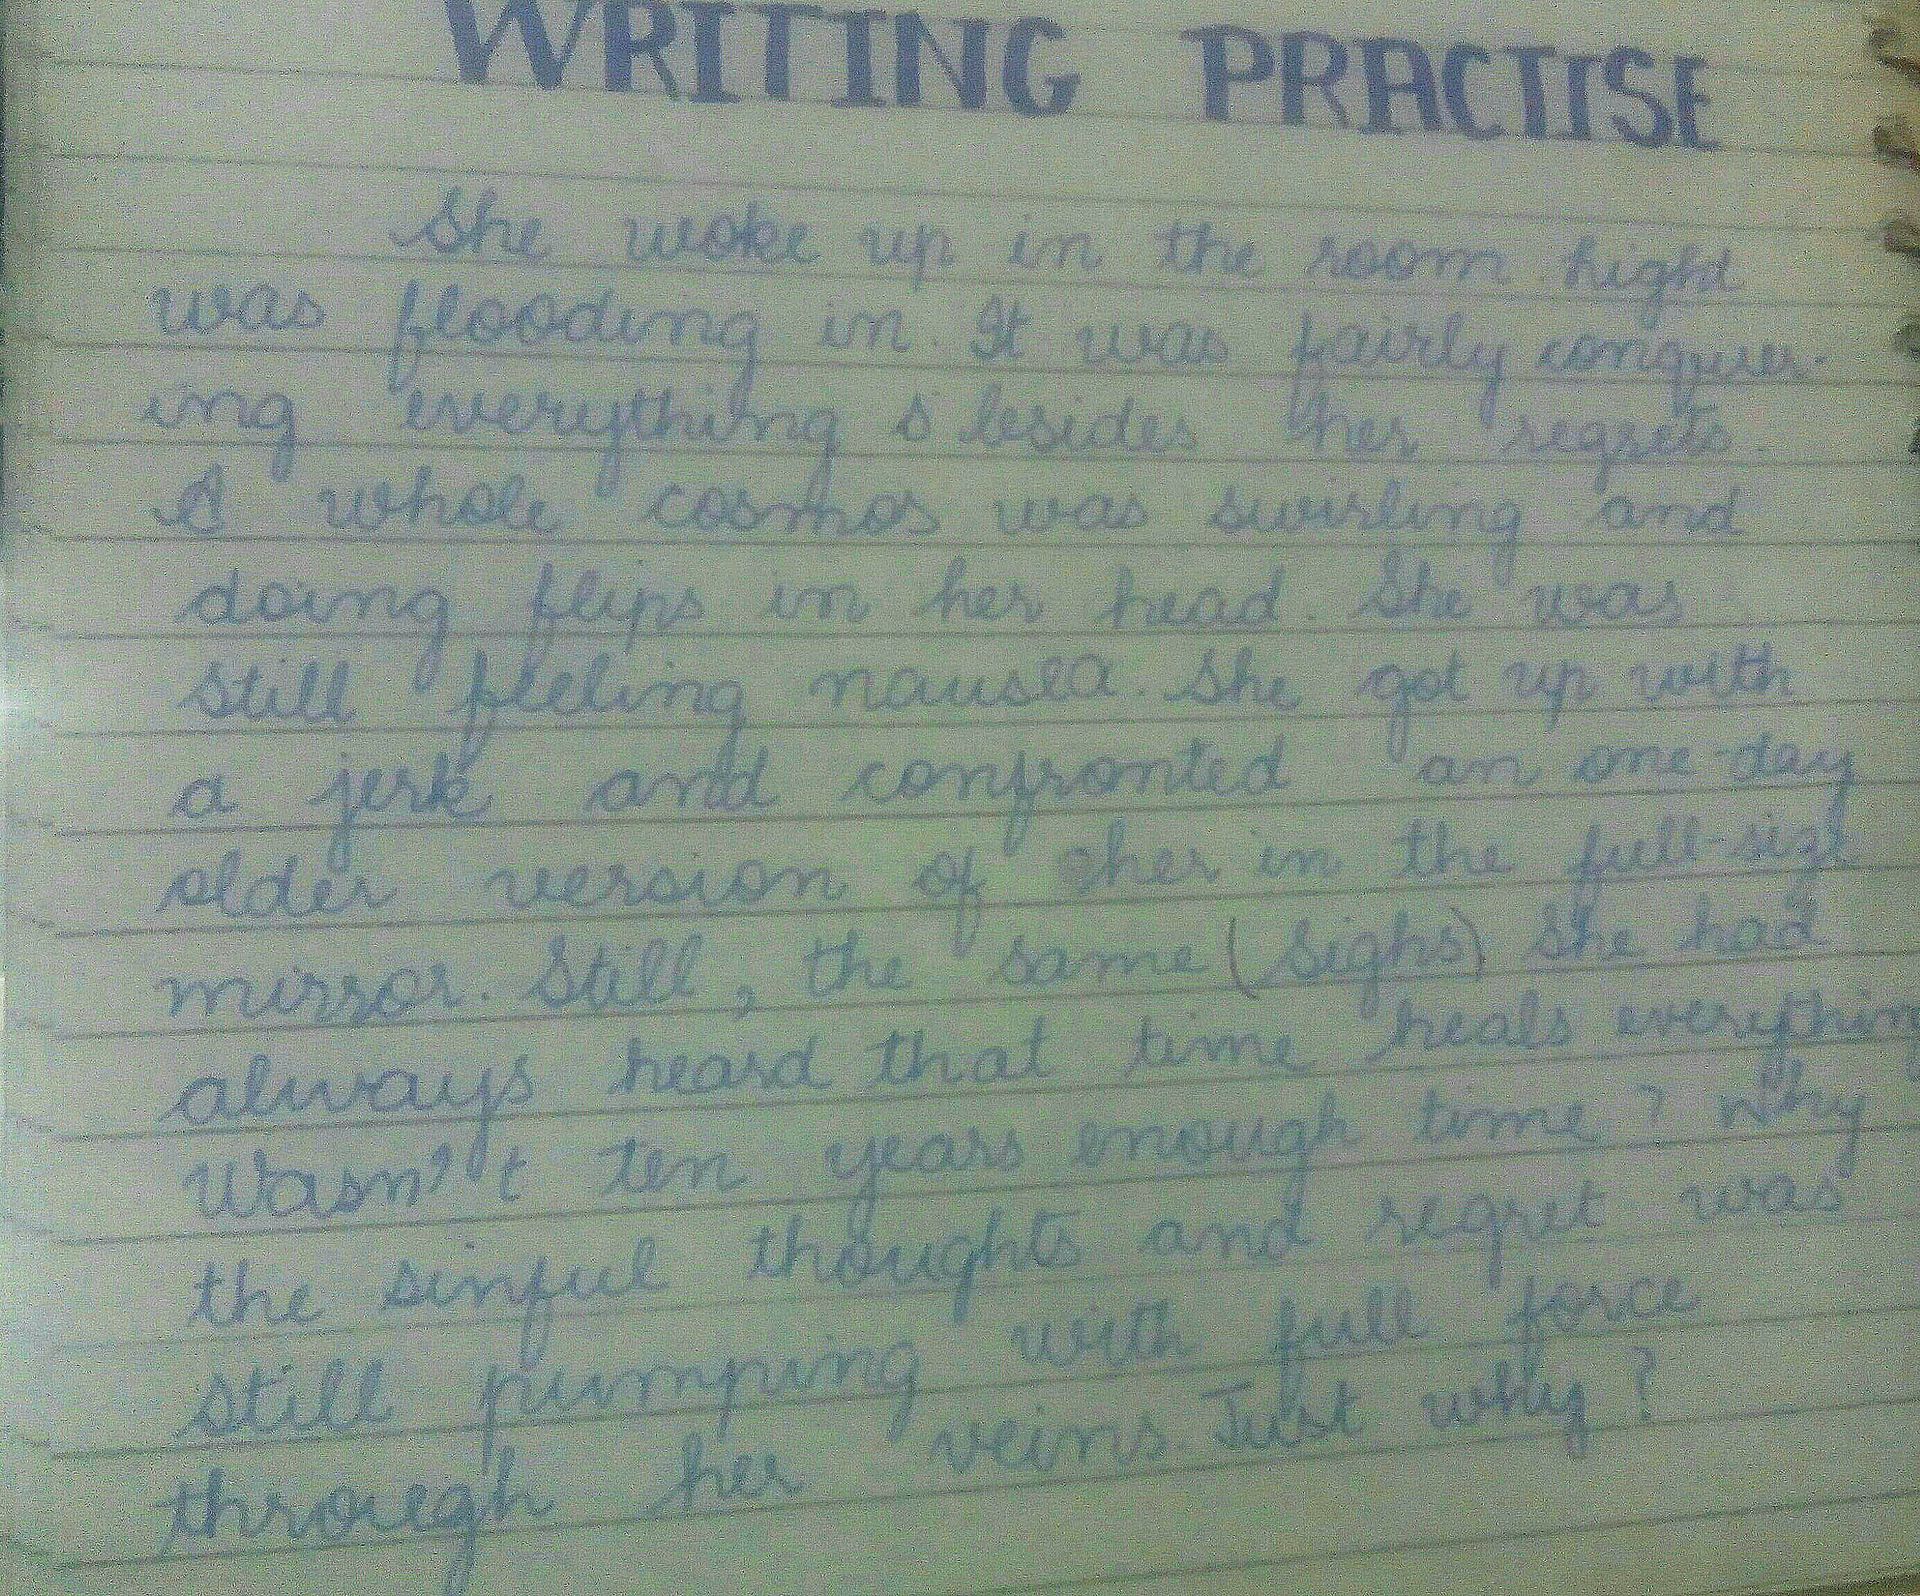 WRITING PRACTISE
She woke up in the room. Light
was flooding in. It was fairly conquer-
ing everything besides her regrets.
A whole cosmos was swirling and
doing flips in her head. She was
still feeling nausea. She got up with
a jerk and confronted an one-day
older version of her in the full-size
mirror. Still, the same (Sighs) She had
always heard that time heals everything
Wasn't ten years enough time? Why
the sinful thoughts and regret was
still pumping with full force
through her veins. Just why?